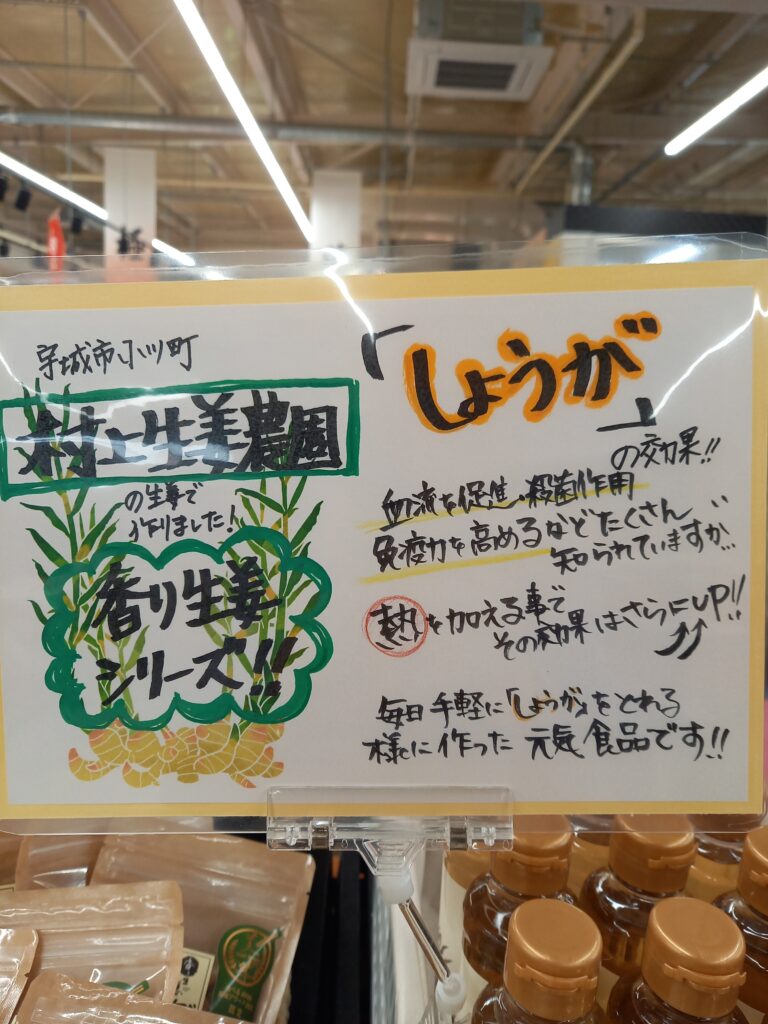 宇城市小川町
村上生姜農園
の生姜で
作りました！
香り生姜
シリーズ!!
「しょうが」
の効果!!
血流を促進、殺菌作用
免疫力を高めるなどたくさん
知られていますが…
熱を加える事で
その効果はさらにUP!!
毎日手軽に「しょうが」をとれる
様に作った 元気食品です!!